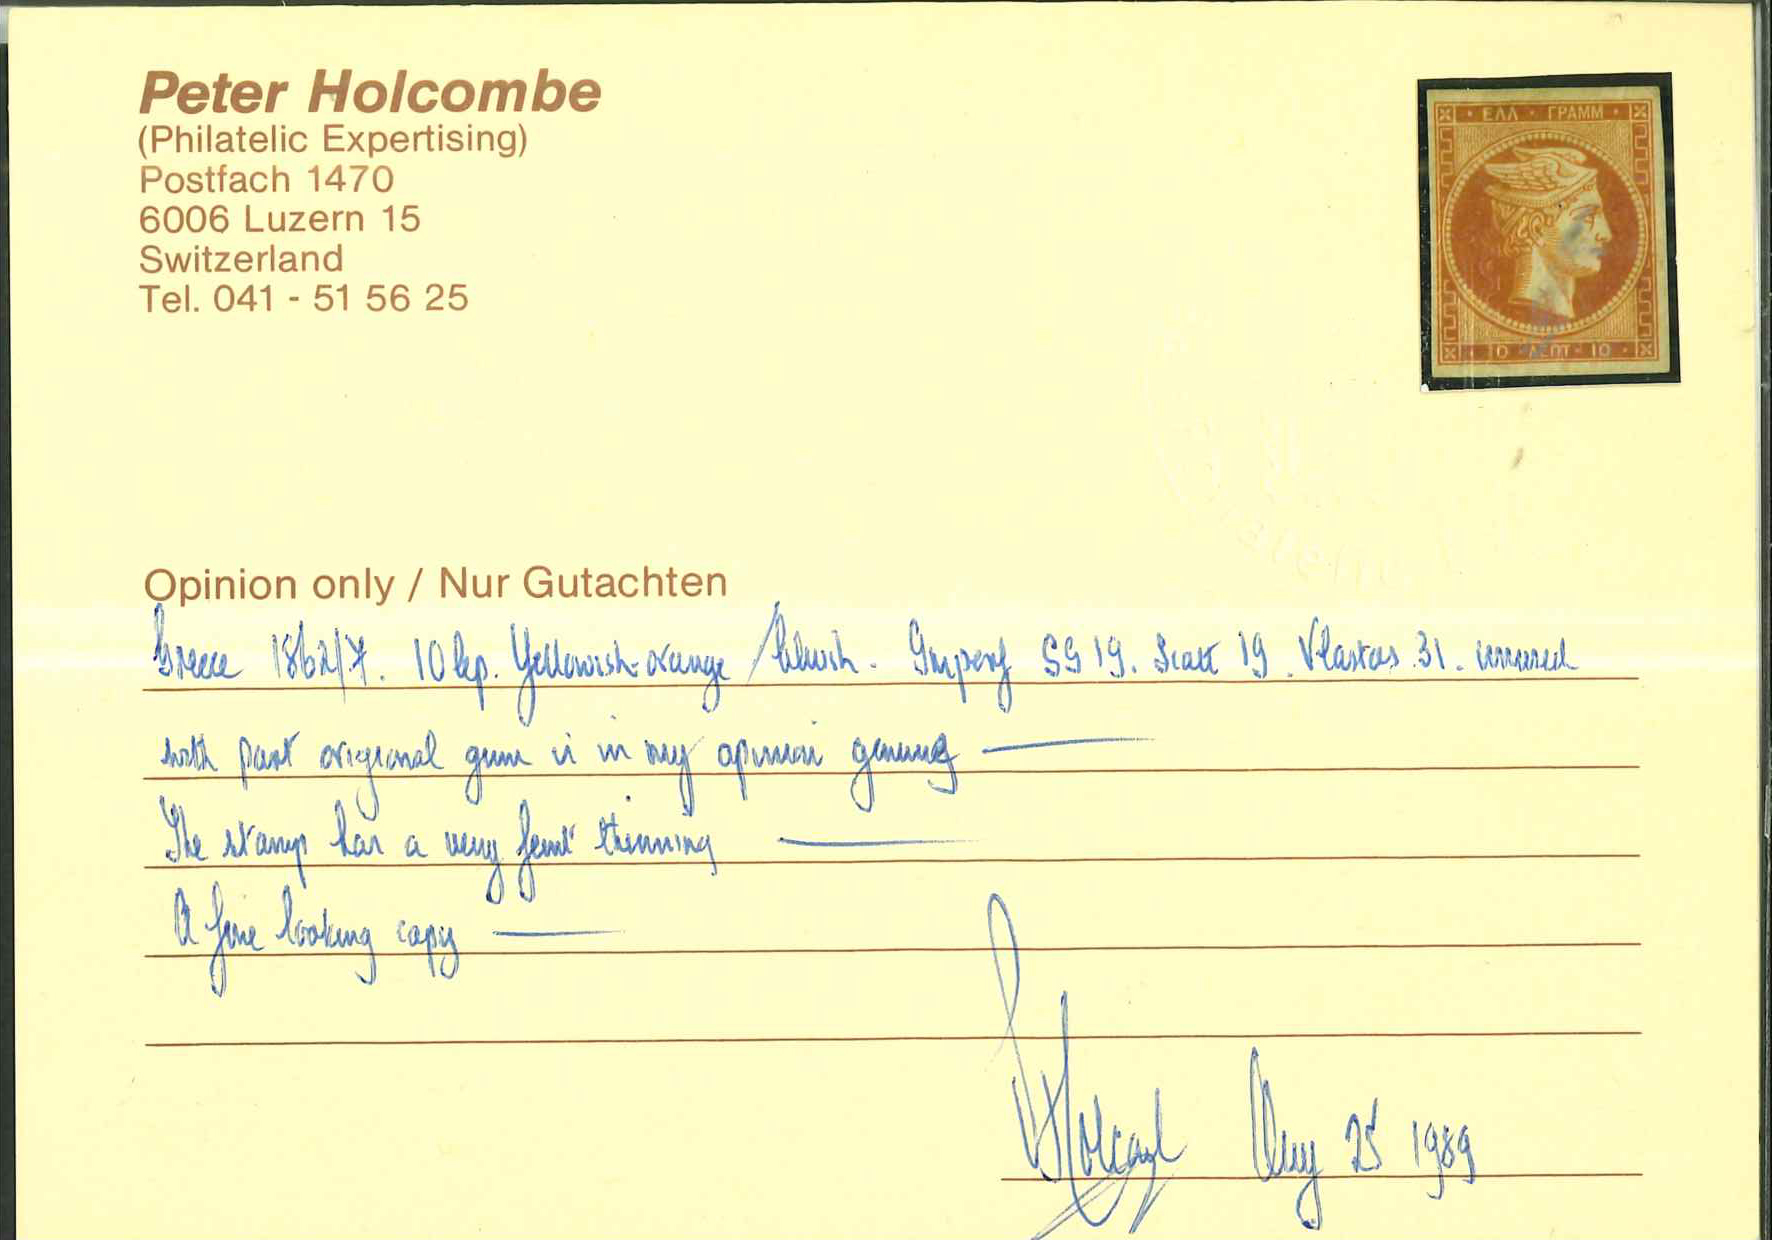 Peter Holcombe
(Philatelic Expertising)
Postfach 1470
6006 Luzern 15
Switzerland
Tel. 041 - 51 56 25
ΕΛΛ · ΓΡΑΜΜ
10 ΛΕΠΤ · 10
Opinion only / Nur Gutachten
Greece 1862/7. 10 lep. Yellowish-orange / bluish. Imperf SG 19. Scott 19. Vlastos 31. unused
with part original gum is in my opinion genuine
The stamp has a very faint thinning
A fine looking copy
Aug 25 1989